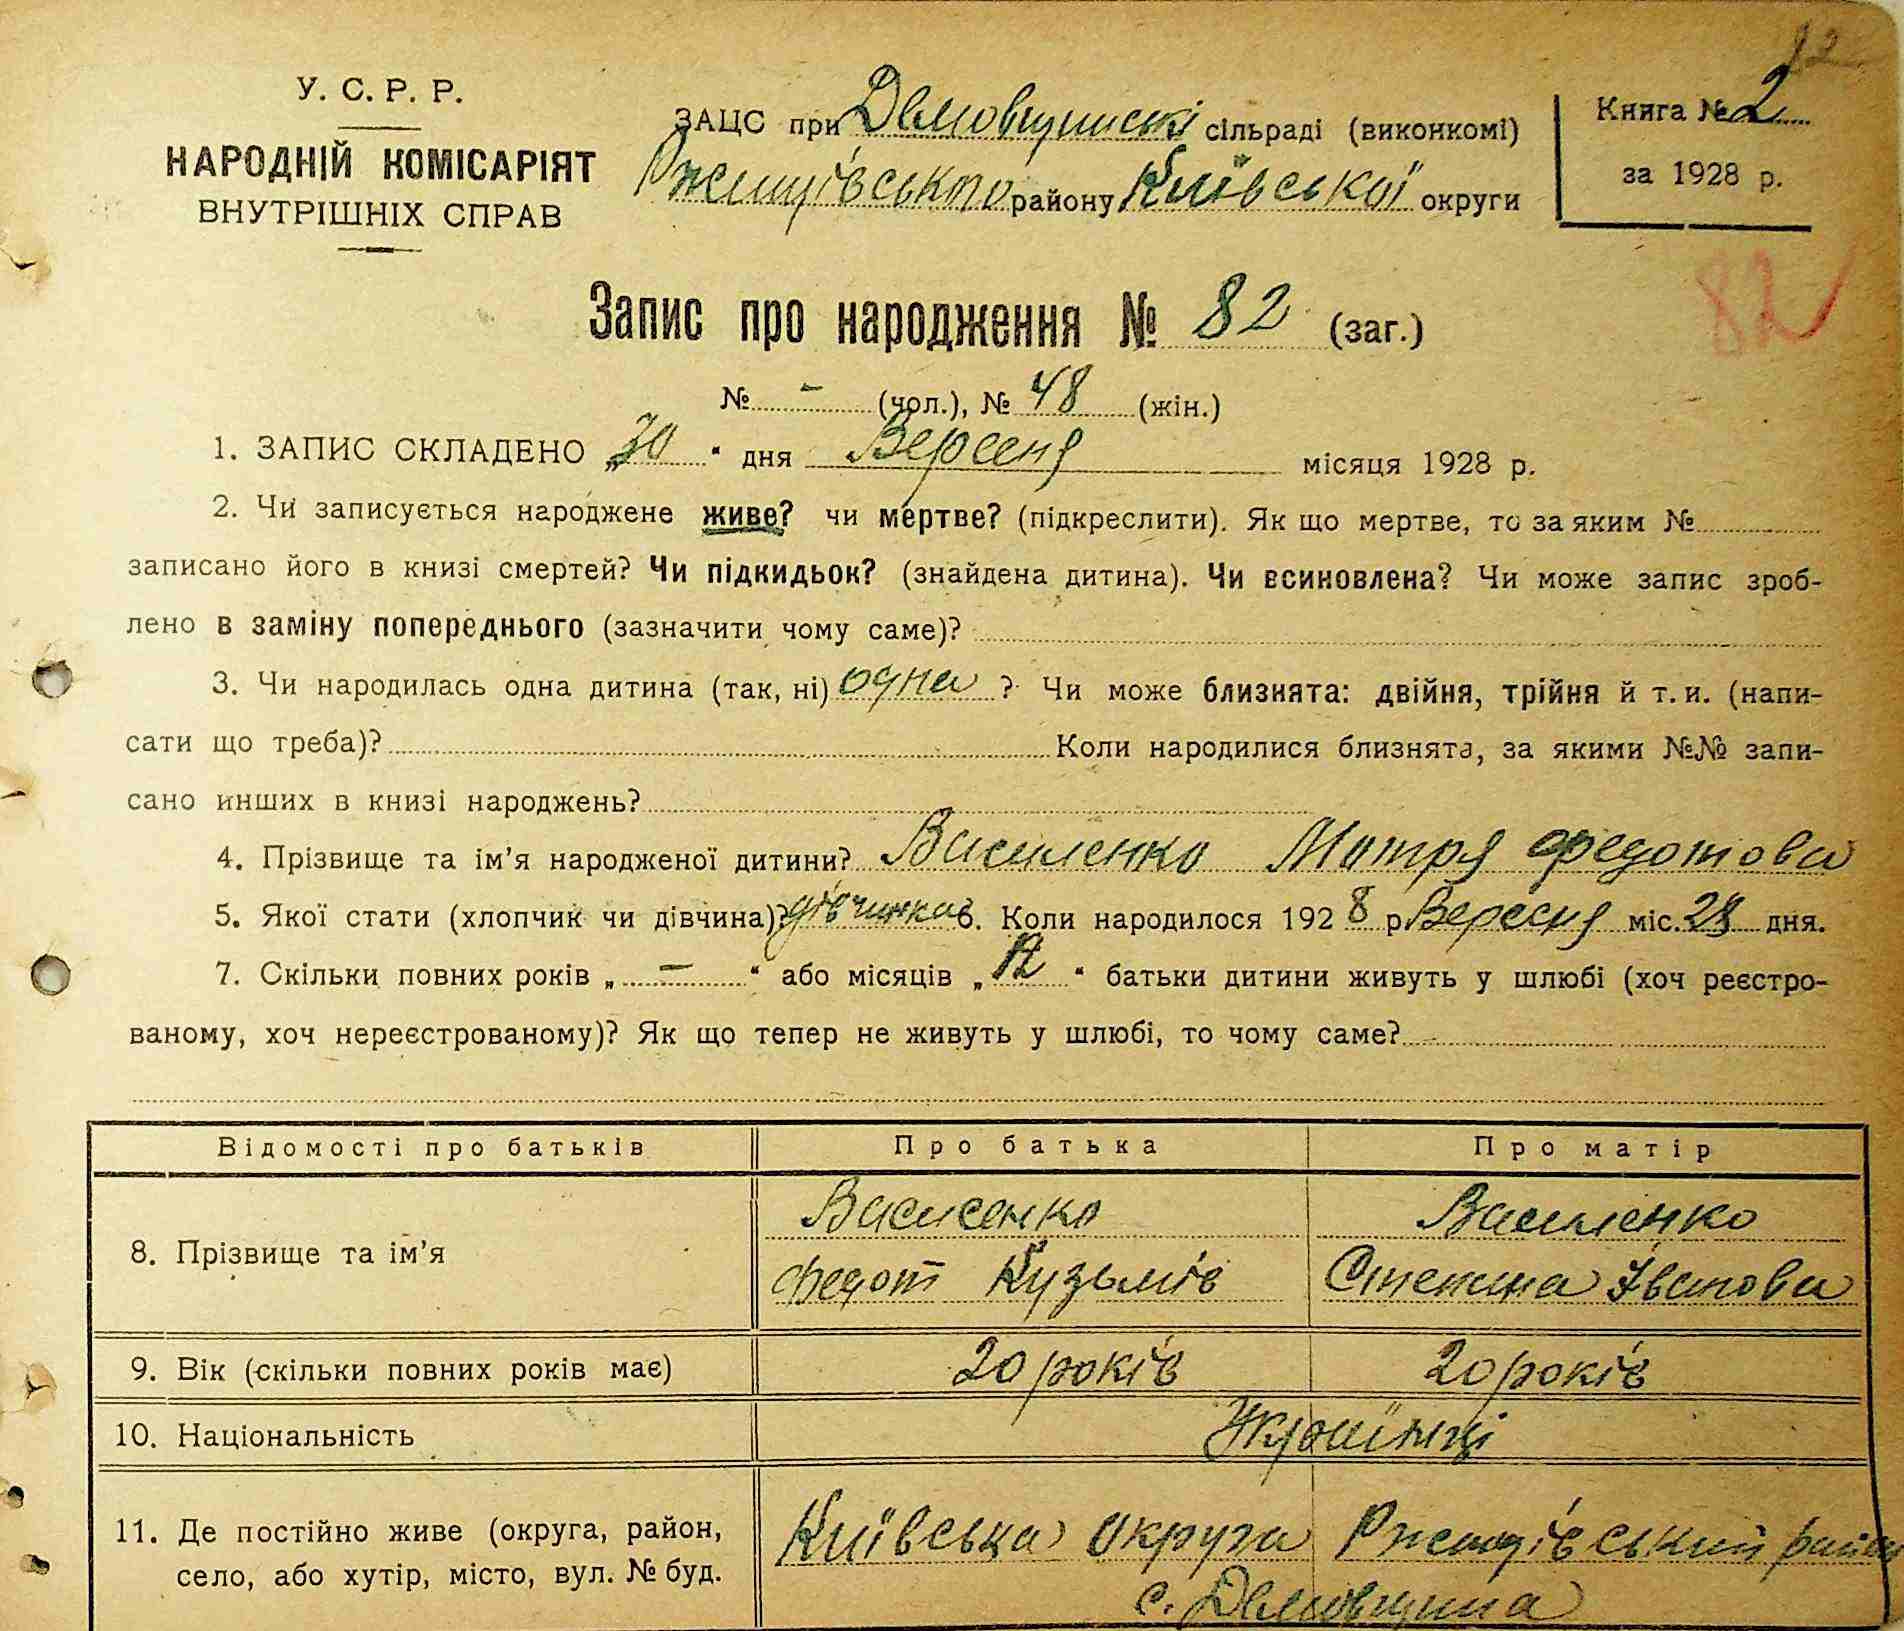 82
У. С. Р. Р.
НАРОДНІЙ КОМІСАРІЯТ
ВНУТРІШНІХ СПРАВ
ЗАЦС при сільраді (виконкомі)
Ржищівського району Київської округи
Книга № 2
за 1928 р.
82
Запис про народження № 82 (заг.)
№ - (чол.), № 48 (жін.)
1. ЗАПИС СКЛАДЕНО „30“ дня Вересня місяця 1928 р.
2. Чи записується народжене живе? чи мертве? (підкреслити). Як що мертве, то за яким №
записано його в книзі смертей? Чи підкидьок? (знайдена дитина). Чи всиновлена? Чи може запис зроб-
лено в заміну попереднього (зазначити чому саме)?
3. Чи народилась одна дитина (так, ні) одна ? Чи може близнята: двійня, трійня й т. и. (напи-
сати що треба)? Коли народилися близнята, за якими №№ запи-
сано инших в книзі народжень?
4. Прізвище та ім’я народженої дитини? Василенко Мотря Федотова
5. Якої стати (хлопчик чи дівчина)? дівчинка 6. Коли народилося 1928 р. Вересня міс. 28 дня.
7. Скільки повних років „ - “ або місяців „12“ батьки дитини живуть у шлюбі (хоч реєстро-
ваному, хоч нереєстрованому)? Як що тепер не живуть у шлюбі, то чому саме?
Відомості про батьків Про батька Про матір
8. Прізвище та ім’я
Василенко Василенко
Федот Кузьмів Степана Іванова
9. Вік (скільки повних років має) 20 років 20 років
10. Національність Українці
11. Де постійно живе (округа, район,
село, або хутір, місто, вул. № буд.
Київська округа Ржищівський район
с.